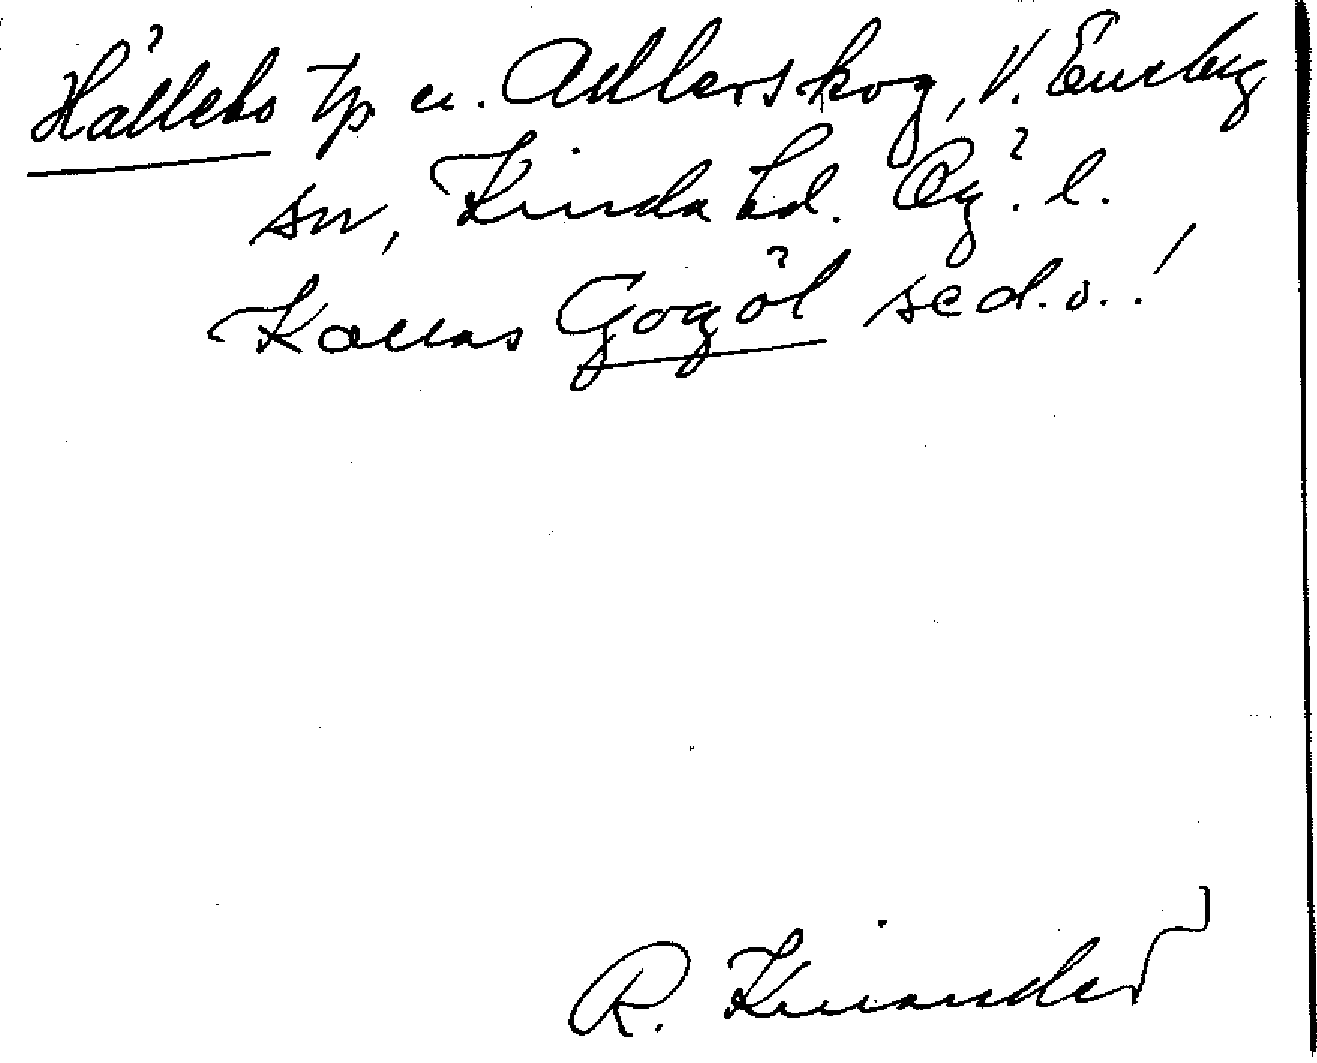 Hällebo tp u. Adlerskog, V. Eneby
sn, Kinda hd. Ög. l.
Kallas Gogöl sed. o.!
R. Kinander